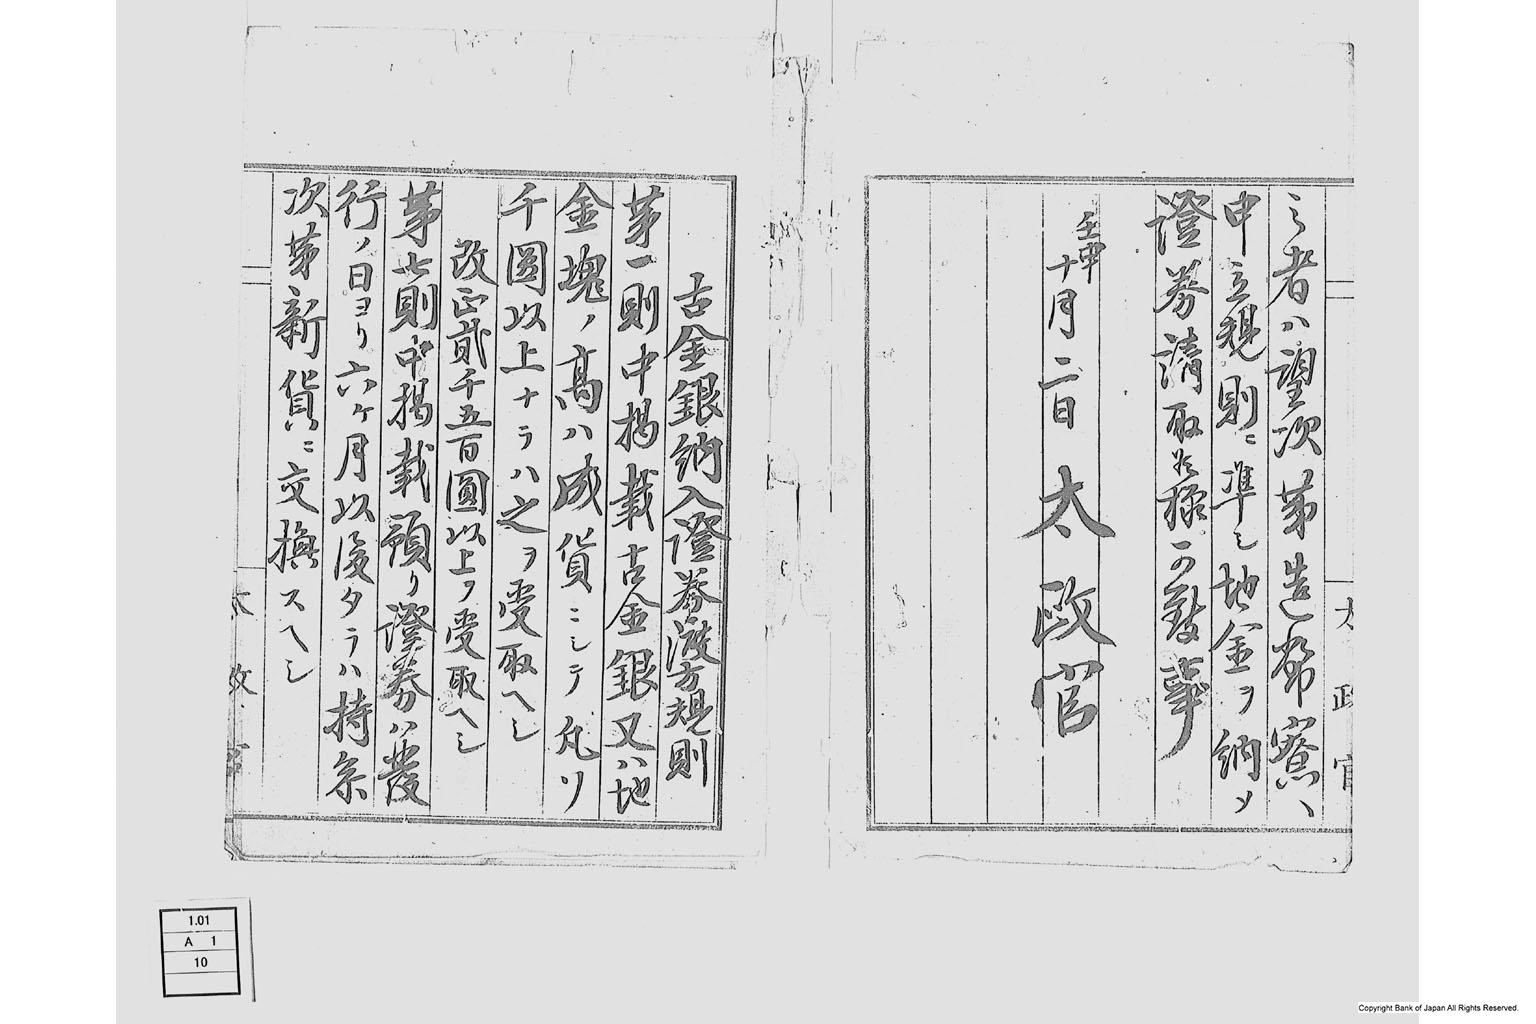 之者ハ望次第造幣寮ヘ
申立規則ニ準シ地金ヲ納メ
證券請取候様可致事
壬申
十月二日 太政官
太政官
古金銀納入證券渡方規則
第一則中掲載古金銀又ハ地
金塊ノ高ハ成貨ニシテ凡ソ
千圓以上ナラハ之ヲ受取ヘシ
改正貳千五百圓以上ヲ受取ヘシ
第七則中掲載預リ證券ハ發
行ノ日ヨリ六ケ月以後タラハ持参
次第新貨ニ交換スヘシ
太政官
1.01
A 1
10
Copyright Bank of Japan All Rights Reserved.